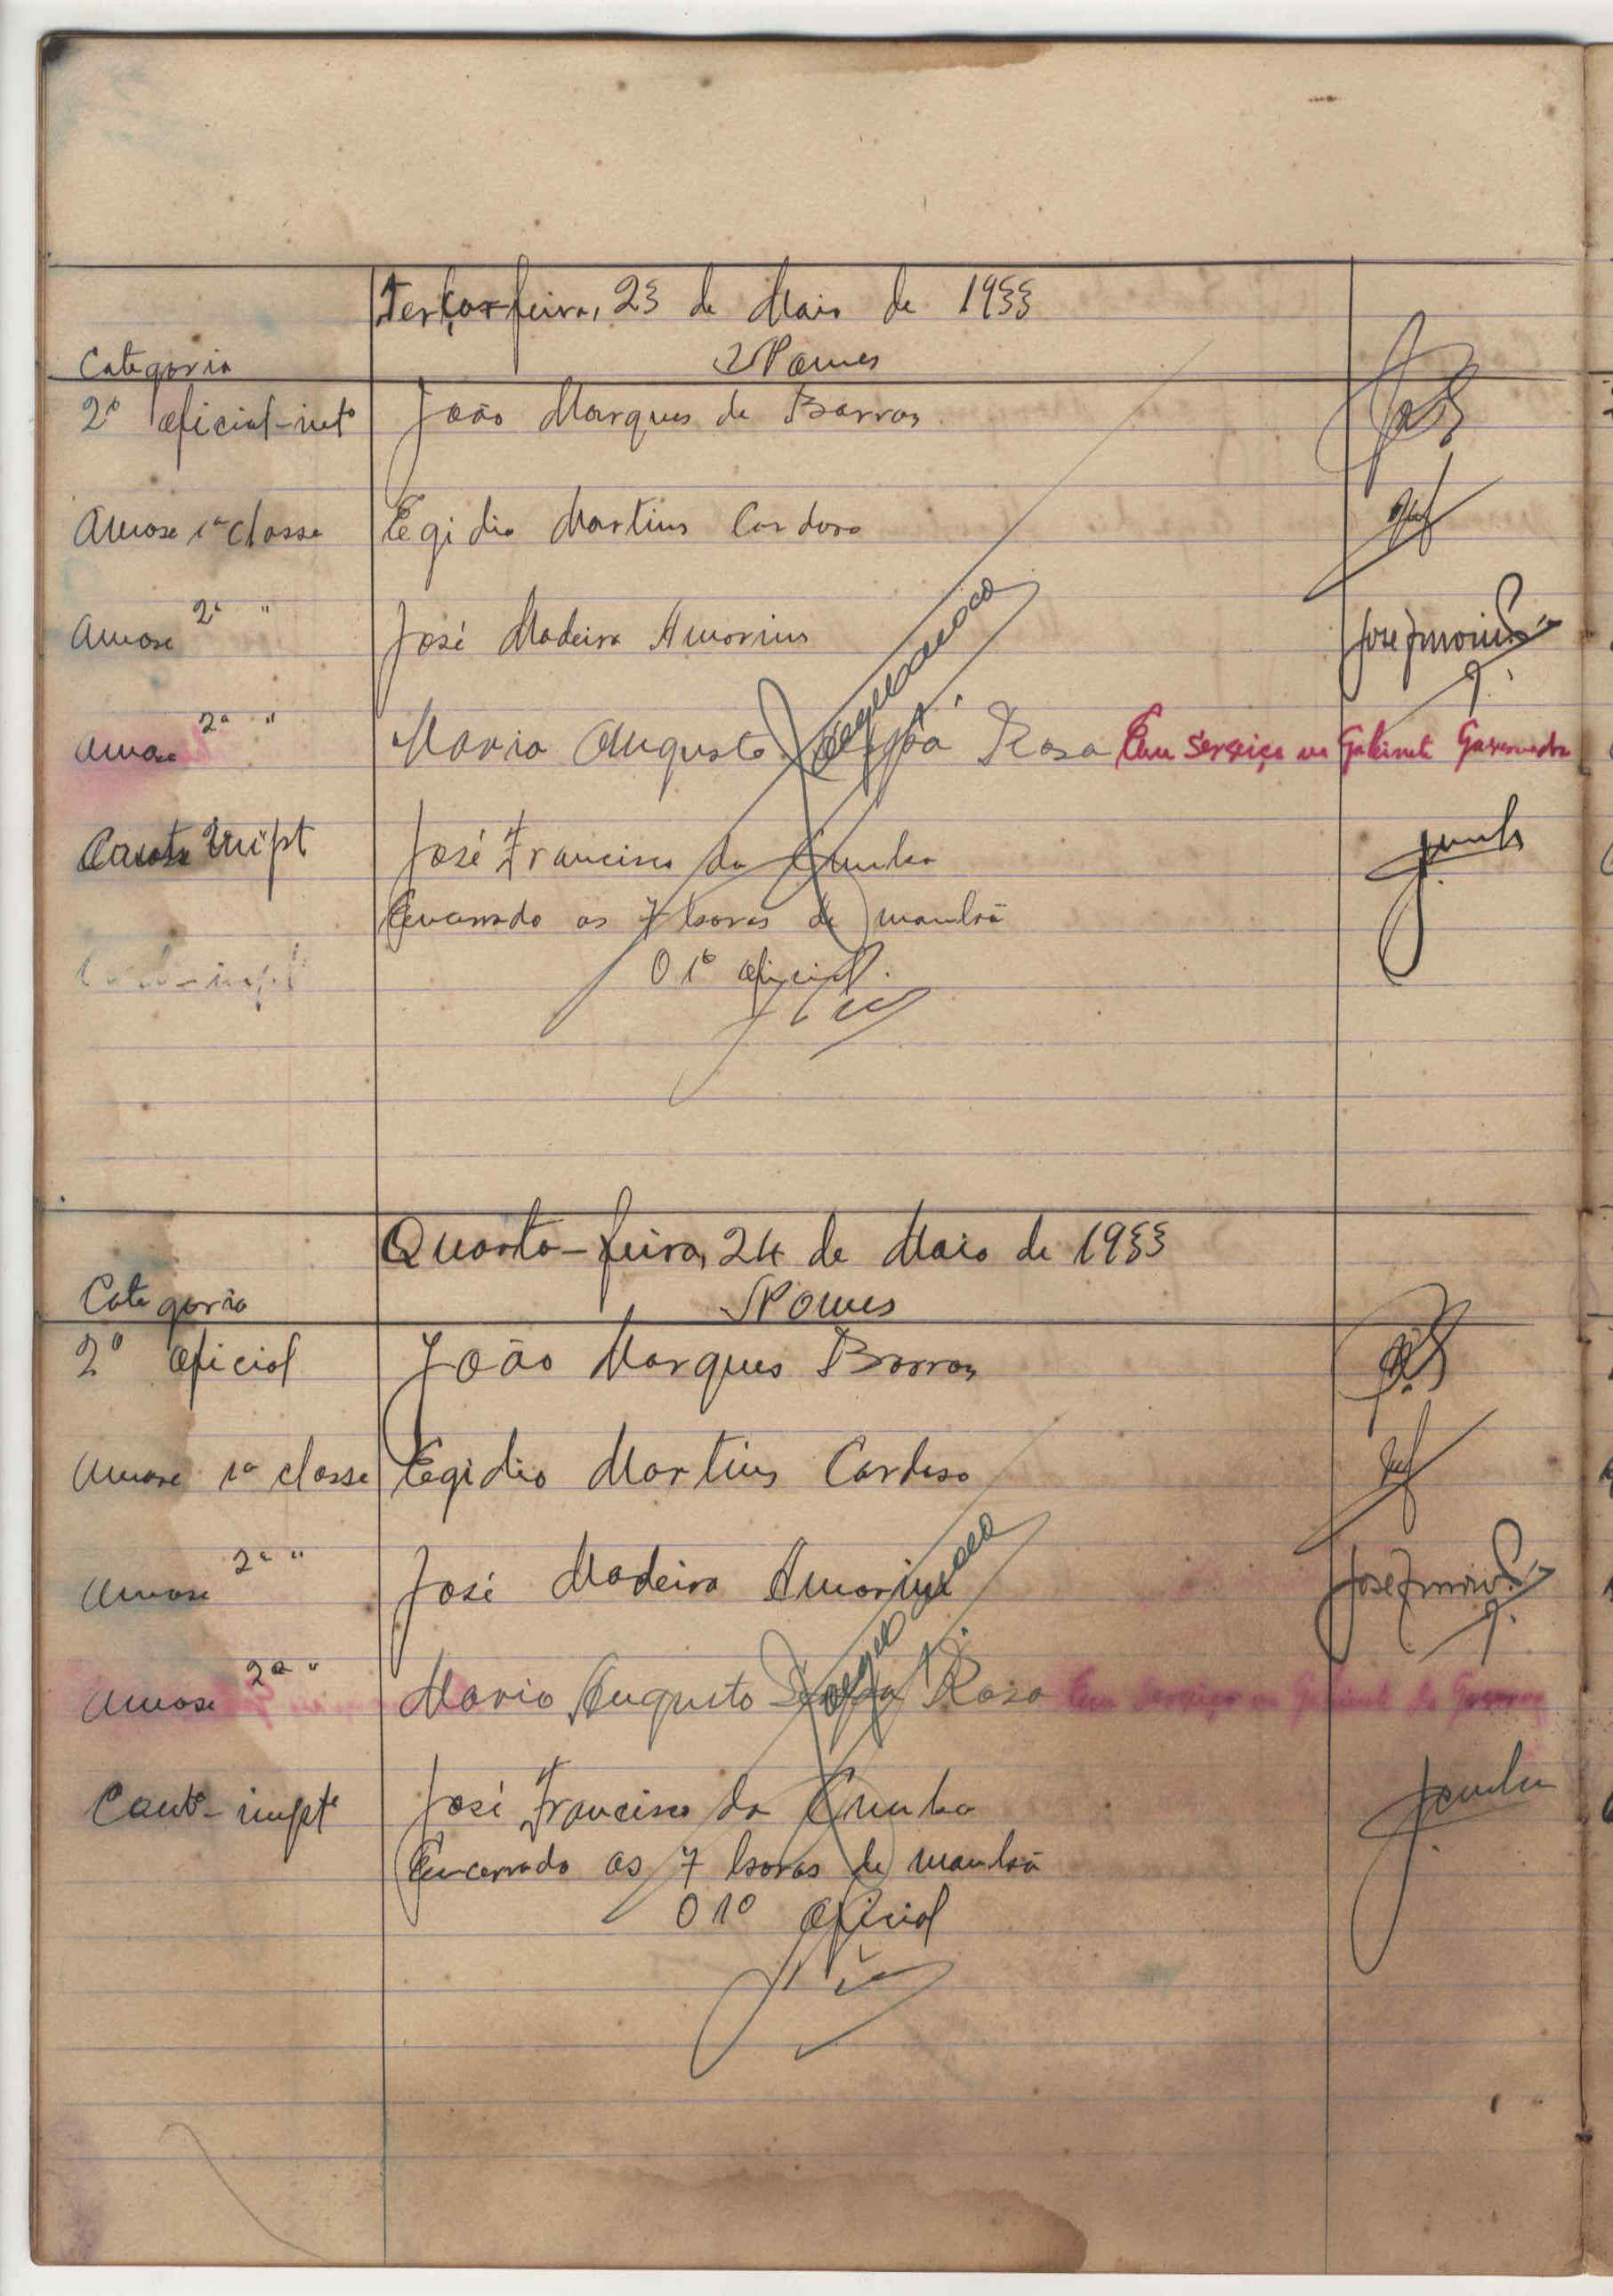 Terça-feira, 23 de Maio de 1933
Categoria Nomes
2º oficial-intº João Marques de Barros
Amose 1ª classe Egidio Martins Cardoso
Amose 2ª " José Madeira Amorim José Amorim
Amose 2ª " Mario Augusto Rosa Em serviço no Gabinete Governador
José Francisco da Cunha
Encerrado as 7 horas de manhã
O 1º oficial.
Quarta-feira, 24 de Maio de 1933
Categoria Nomes
2º oficial João Marques Barros
Amose 1ª classe Egidio Martins Cardoso
Amose 2ª " José Madeira Amorim José Amorim
Amose 2ª " Mario Augusto Rosa Em serviço no Gabinete do Governo
Contº-imptº José Francisco da Cunha
Encerrado as 7 horas de manhã
O 1º oficial